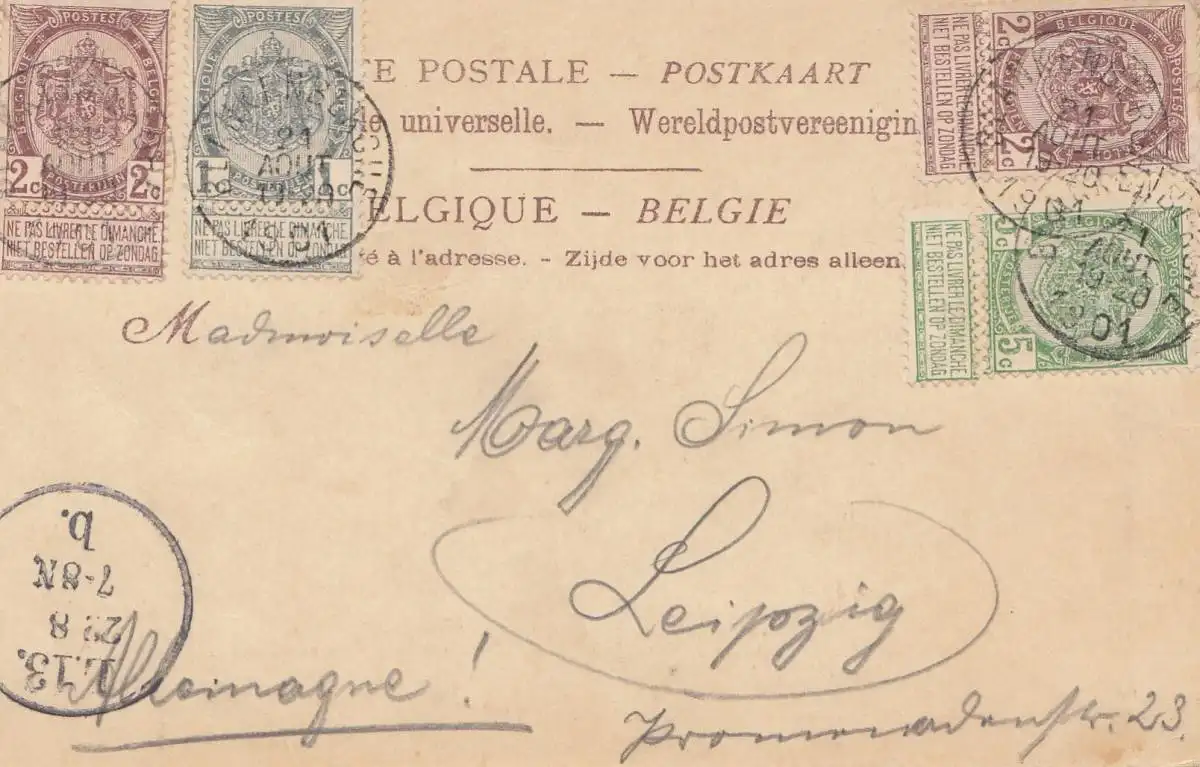 POSTES
BELGIQUE BELGIË
POSTERIJEN
2c 2c
NE PAS LIVRER LE DIMANCHE
NIET BESTELLEN OP ZONDAG
21
AOUT
POSTES
BELGIQUE
POSTERIJEN
1c 1c
NE PAS LIVRER LE DIMANCHE
NIET BESTELLEN OP ZONDAG
21
AOUT
TE POSTALE — POSTKAART
le universelle. — Wereldpostvereenigin
ELGIQUE — BELGIE
té à l'adresse. - Zijde voor het adres alleen
NE PAS LIVRER LE DIMANCHE
NIET BESTELLEN OP ZONDAG
2c 2c
BELGIQUE
POSTES
21
AOUT
NE PAS LIVRER LE DIMANCHE
NIET BESTELLEN OP ZONDAG
5c 5c
21
AOUT
19-20
01
Mademoiselle
Marg. Simon
Leipzig
Allemagne!
Promenadenstr. 23.
L.13.
22 8
7-8N
b.